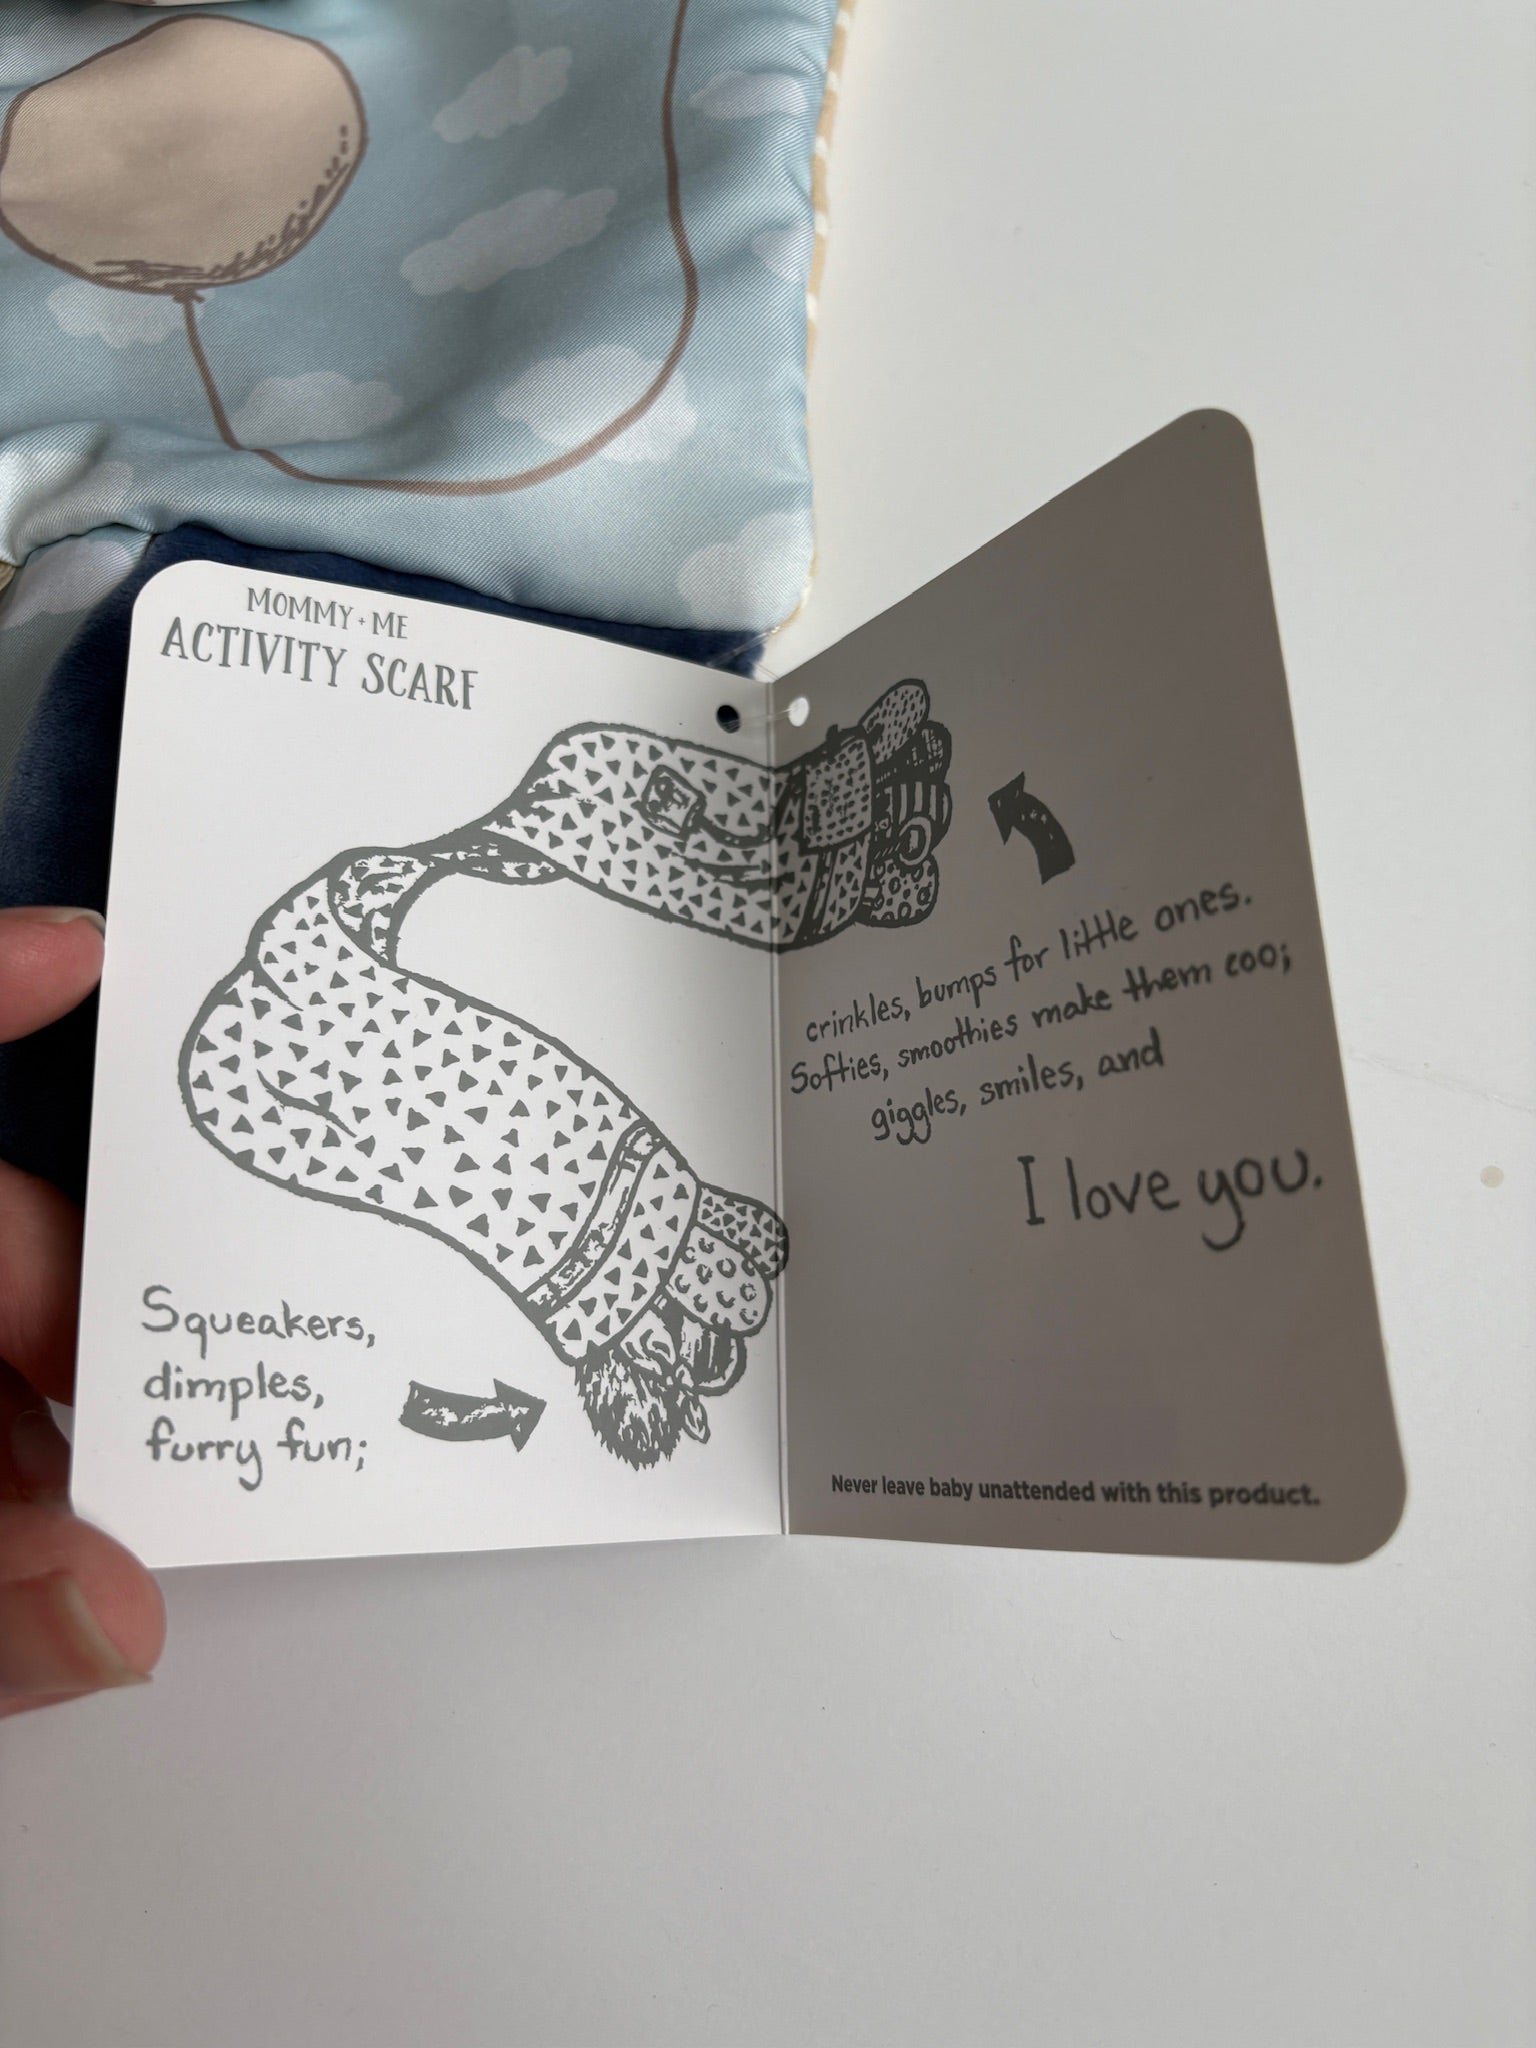 MOMMY + ME
ACTIVITY SCARF
Squeakers,
dimples,
furry fun;
crinkles, bumps for little ones.
Softies, smoothies make them coo;
giggles, smiles, and
I love you.
Never leave baby unattended with this product.